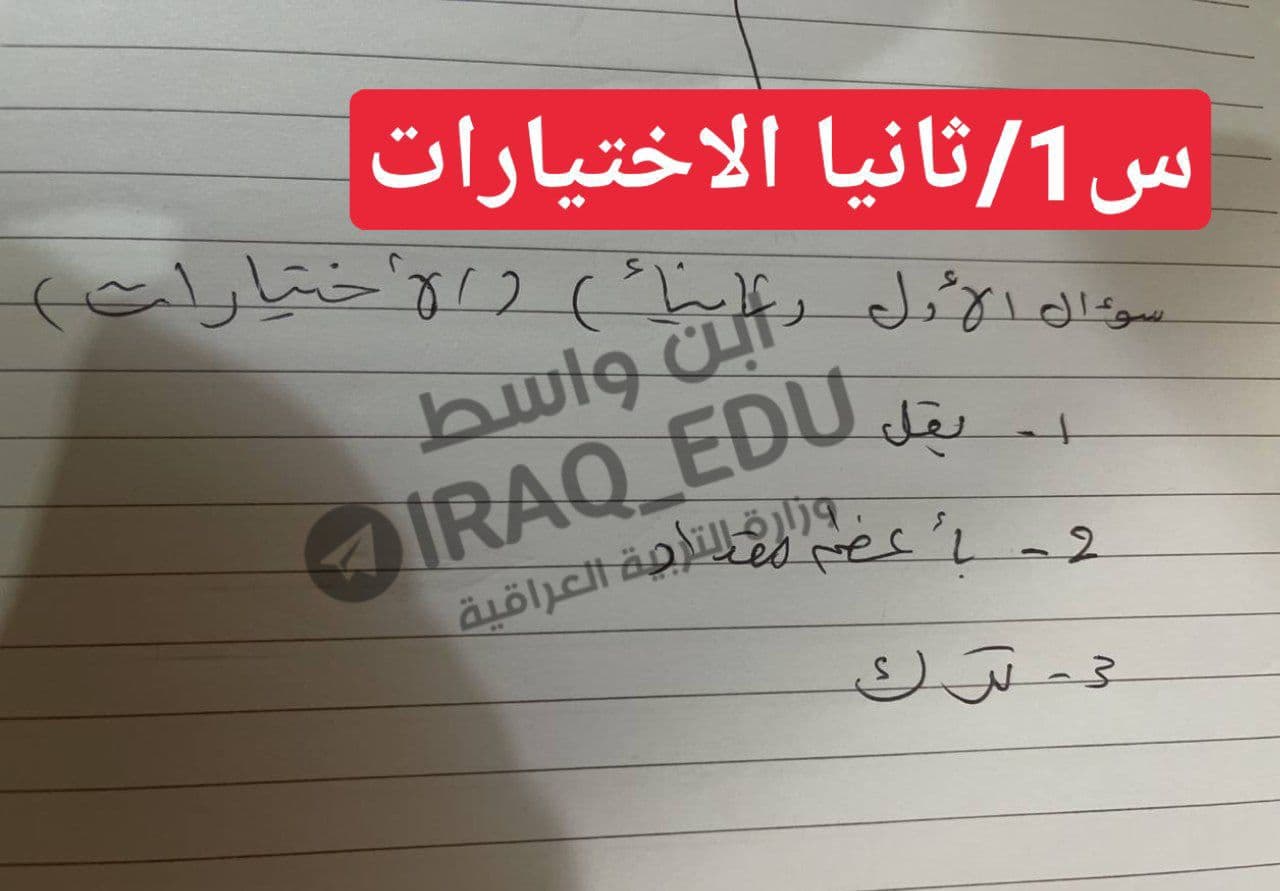 س1/ثانيا الاختيارات
سوءال الأول (ثانياً) (الأختيارات)
ابن واسط
IRAQ_EDU
وزارة التربية العراقية
1- يقل
2- بأعظم مقدار
3- تترك